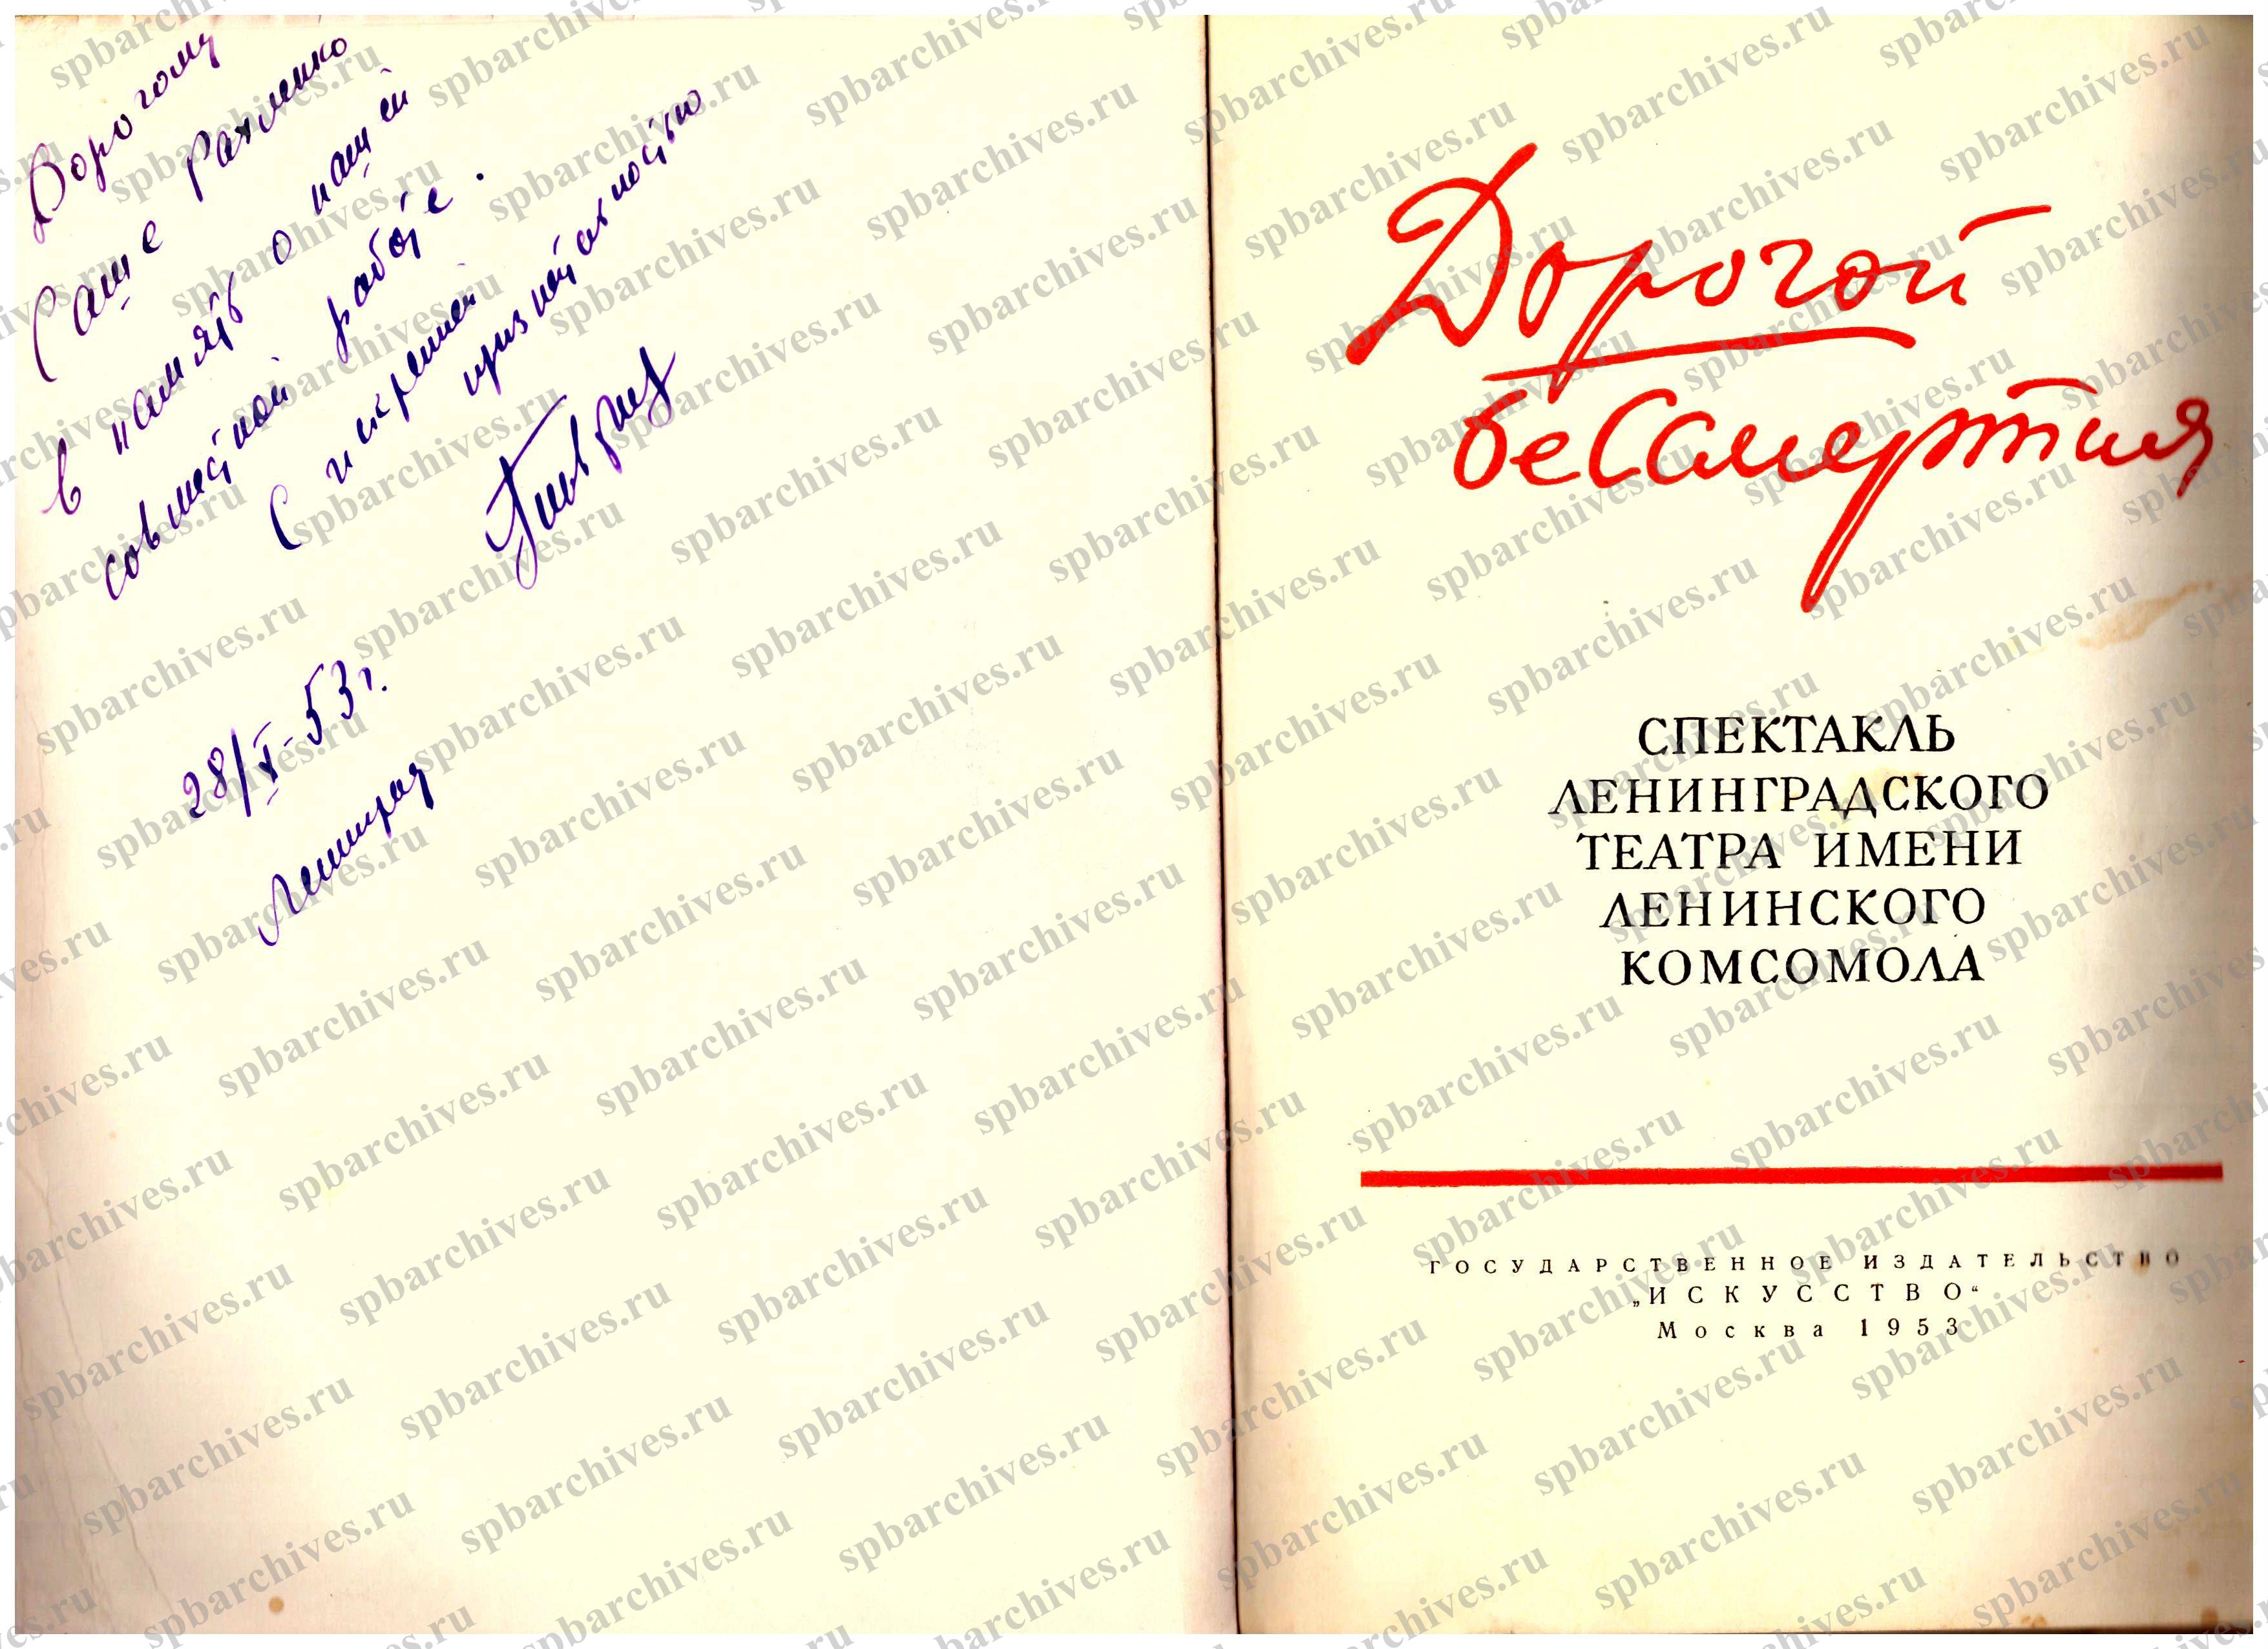 Дорогому
Саше Рахленко
в память о нашей
совместной работе.
С искренней
признательностью
28/X-53 г.
Ленинград
Дорогой
бессмертия
СПЕКТАКЛЬ
ЛЕНИНГРАДСКОГО
ТЕАТРА ИМЕНИ
ЛЕНИНСКОГО
КОМСОМОЛА
ГОСУДАРСТВЕННОЕ ИЗДАТЕЛЬСТВО
„ИСКУССТВО“
Москва 1953
spbarchives.ru